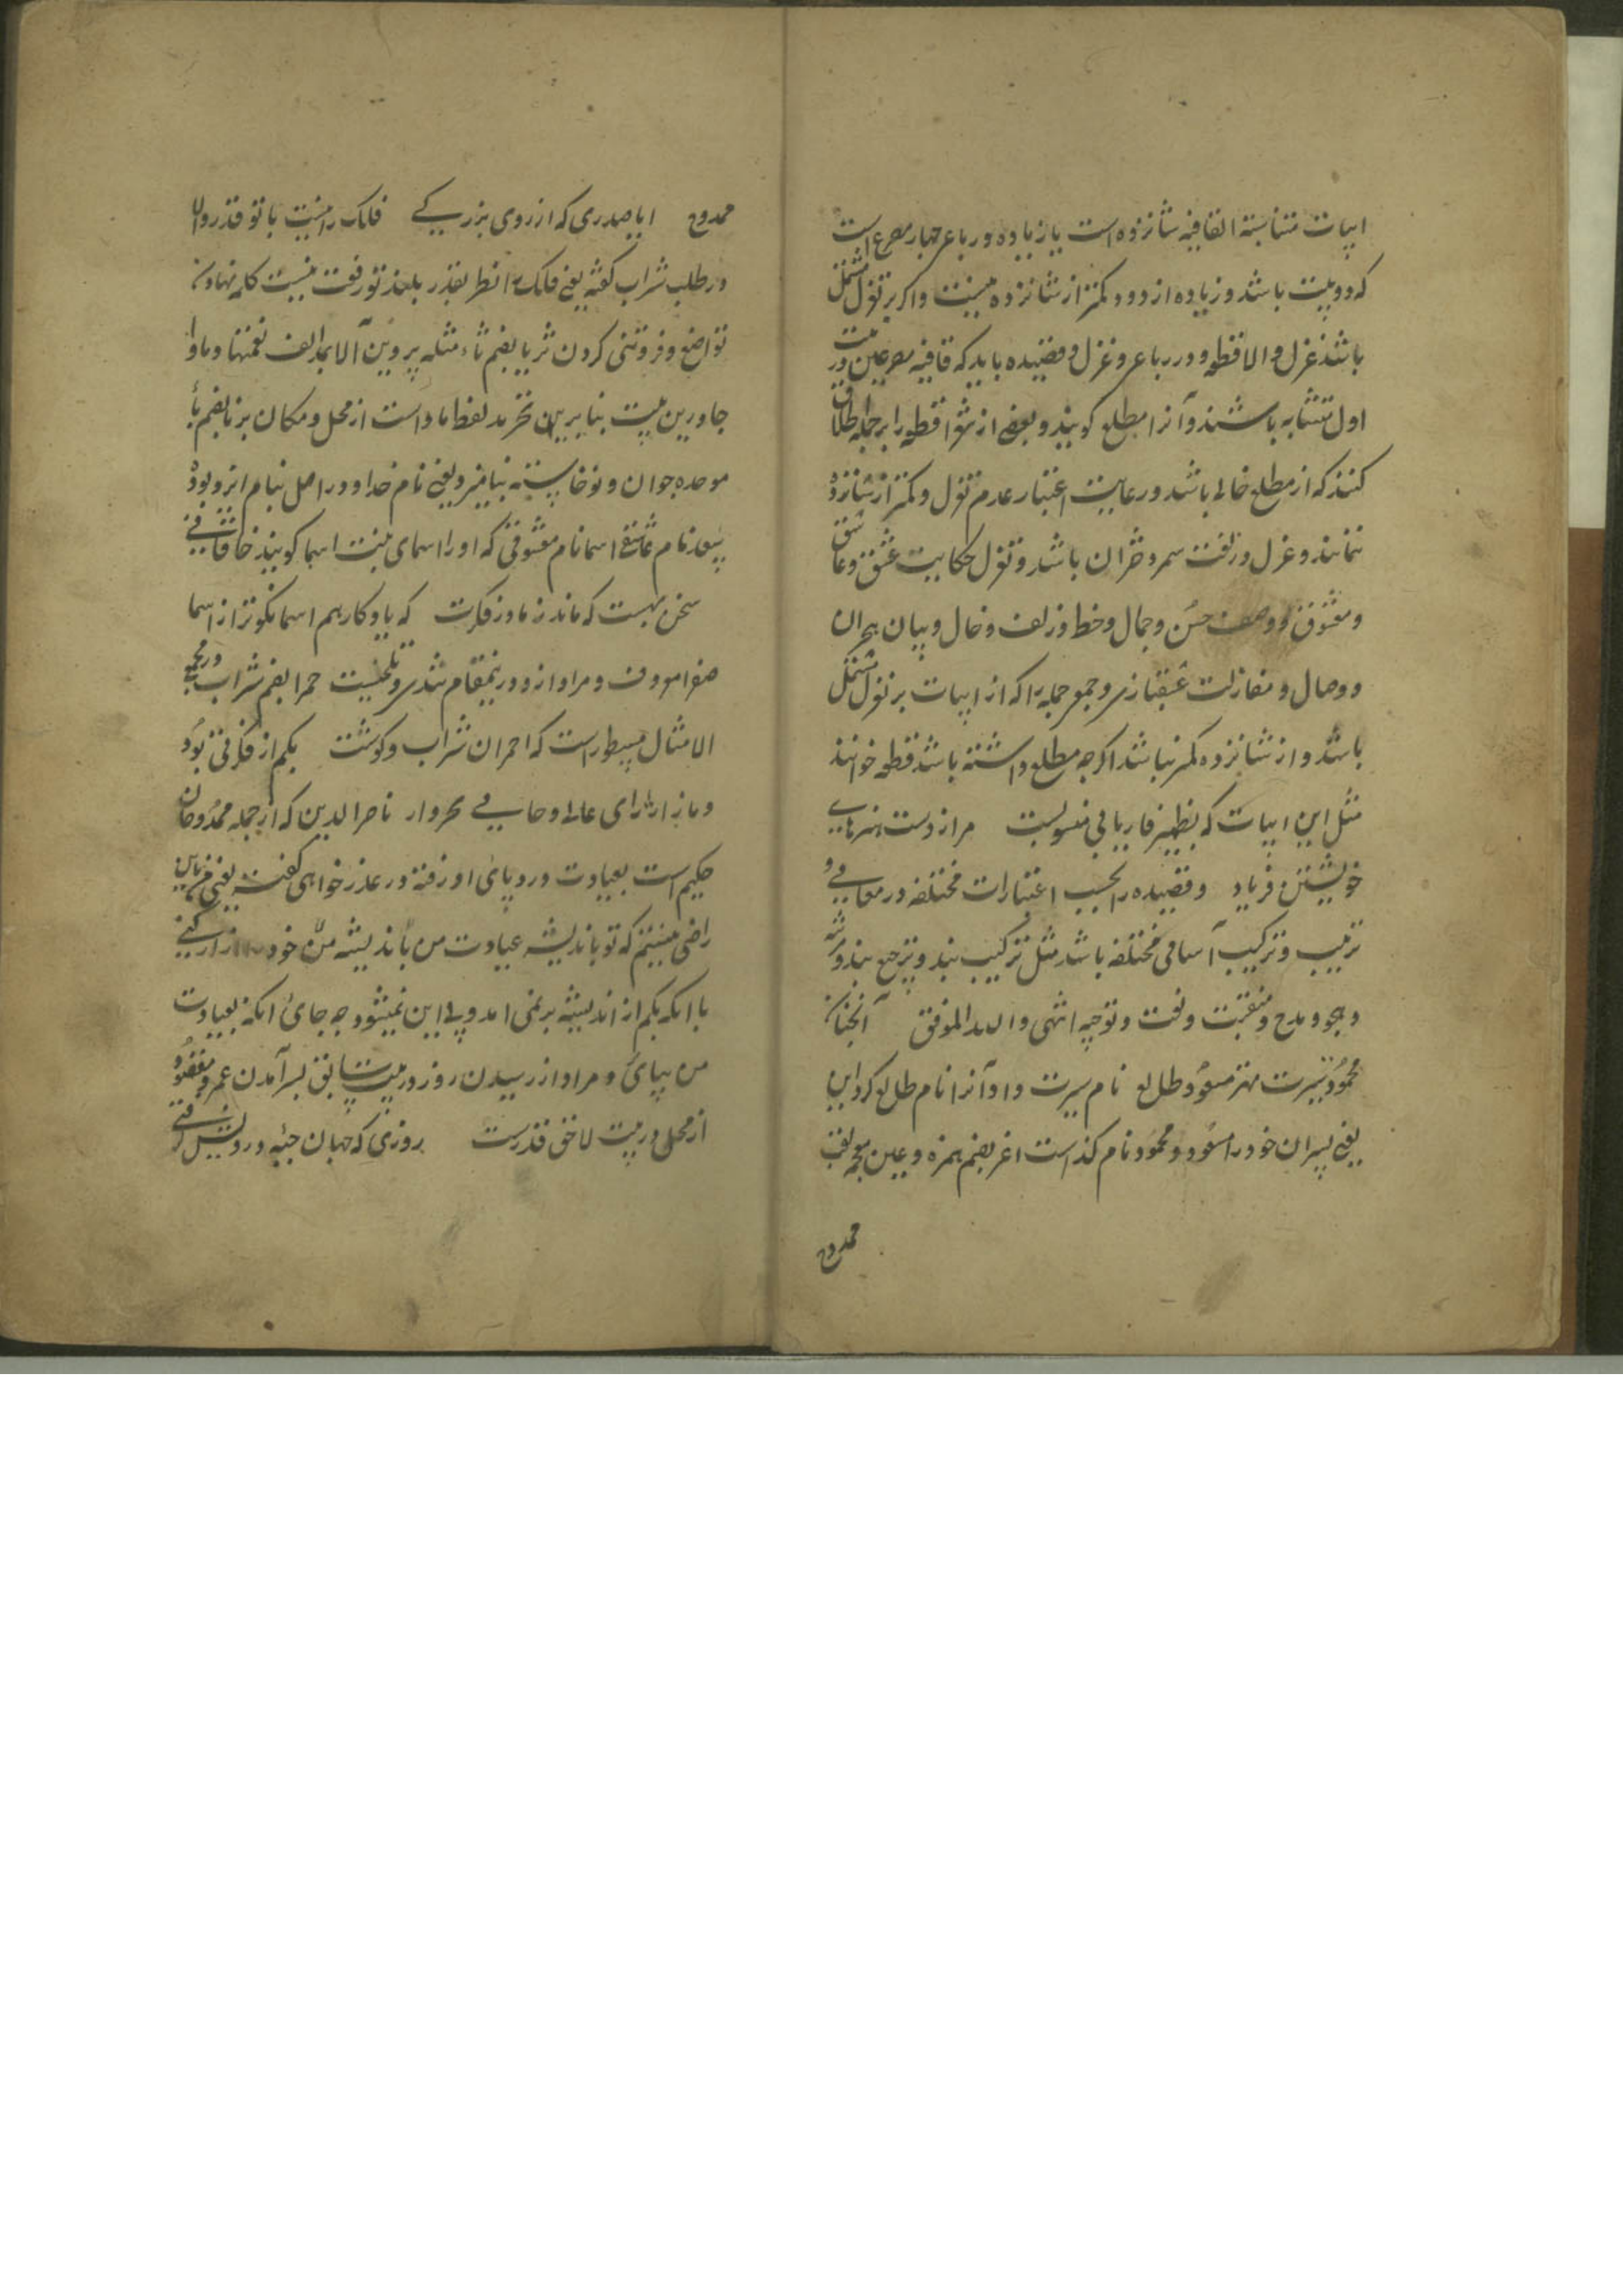 ابیات متناسبة القافیه شانزده است یا زیاده و رباعی چهار مصرع است
که دو بیت باشد و زیاده از دو و کمتر از شانزده نیست و اگر بر تغزل مشتمل
باشد غزل والا قطعه و در رباعی و غزل و قصیده باید که قافیه مصرعین بیت
اول متشابه باشند و آنرا مطلع گویند و بعضی از شعرا قطعه را بر جمله اطلاق
کنند که از مطلع خالی باشد و رعایت اعتبار عدم تغزل و کمتر از شانزده
ننمایند و غزل در لغت سمر دختران باشد و تغزل حکایت عشق و عاشق
و معشوق و وصف حسن و جمال و خط و زلف و خال و بیان هجران
و وصال و مغازلت عشقبازی و جمع جمله را که از ابیات بر تغزل مشتمل
باشد و از شانزده کمتر نباشد اگرچه مطلع داشته باشد قطعه خوانند
مثل این ابیات که بظهیر فاریابی منسوبست مرا ز دست هنرهای
خویشتن فریاد و قصیده را بحسب اعتبارات مختلفه در معانی و
ترتیب و ترکیب آسامی مختلفه باشد مثل ترکیب بند و ترجیع بند و مرثیه
و هجو و مدح و منقبت و نعت و توحید انتهی والله الموفق آنجنانکه
محمود سیرت مهتر مسعود طالع نام سیرت داد و آنرا نام طالع کرد این
یعنی پسران خود را مسعود و محمود نام گذاست اغر بضم همزه و عین معجمه لقب
ممدوح
ممدوح ایا صدری که از روی بزرگی فلک را نیست با تو قدر والا
در طلب شراب گفته یعنی فلک را نظر بقدر بلند تو رفعت نیست کله نهادن
تواضع و فروتنی کردن ثریا بضم ثاء مثلثه پروین آلا بمد الف نعمتها و ماوا
جا و درین بیت بنابرین تجرید لفظ ماوا است از محل و مکان برنا بضم باء
موحده جوان و نوخاسته بنامیزد یعنی نام خدا و در اصل بنام ایزد بوده
سعد نام عاشق اسما نام معشوقی که او را اسمای بنت اسما گویند خاقانی
سخن بهست که ماند ز مادر فکرت که یادگار هم اسما نکوتر از اسما
صفرا معروف و مراد ازو درینمقام تندی و تلخیست حمرا بضم شراب و در مجمع
الامثال مسطور است که احمران شراب و گوشت بکم از فکرتی بود
حکیم است بعیادت درد پای او رفته در عذر خواهی گفته یعنی من باین
راضی نیستم که تو باندیشه عیادت من باندیشه من خود را آزار کنی
با آنکه بکم از اندیشه برنمی آمد و پی این نمیشود چه جای آنکه بعیادت
من بیائی و مراد از رسیدن روز در بیت سابق بسر آمدن عمر و مقصود
از محل در بیت لاحق قدرست روزی که جهان جبه درویش گرفتی